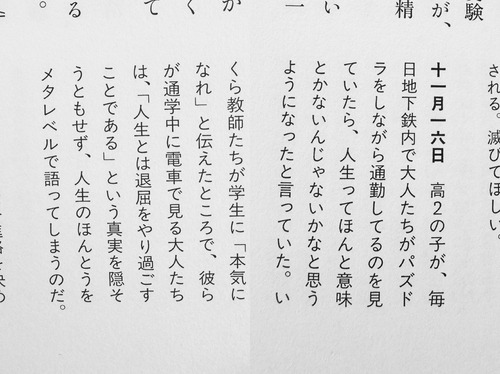 験
が、
精
い
一
が
く
て
る
。
される。滅びてほしい。
十一月一六日　高2の子が、毎
日地下鉄内で大人たちがパズド
ラをしながら通勤してるのを見
ていたら、人生ってほんと意味
とかないんじゃないかなと思う
ようになったと言っていた。い
くら教師たちが学生に「本気に
なれ」と伝えたところで、彼ら
が通学中に電車で見る大人たち
は、「人生とは退屈をやり過ごす
ことである」という真実を隠そ
うともせず、人生のほんとうを
メタレベルで語ってしまうのだ。